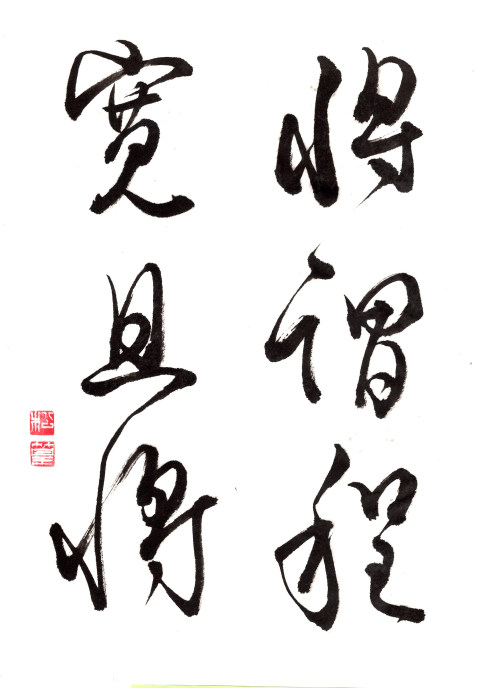 將謂程
寬且將